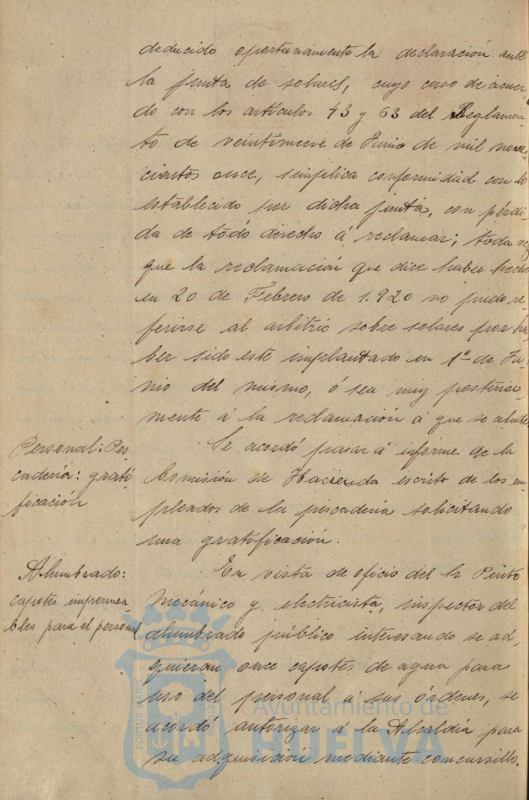 deducido oportunamente la declaración ante
la Junta de solares, cuyo caso de acuer-
do con los artículos 43 y 63 del Reglamen-
to de veintinueve de Junio de mil nove-
cientos once, implica conformidad con lo
establecido por dicha Junta, con pérdi-
da de todo derecho á reclamar; toda vez
que la reclamación que dice haber hecho
en 20 de Febrero de 1.920 no pudo re-
ferirse al arbitrio sobre solares por ha-
ber sido este implantado en 1º de Ju-
nio del mismo, ó sea muy posterior
mente á la reclamación á que se alude.
Personal: Pes
cadería: grati
ficación
Se acordó pasar á informe de la
Comisión de Hacienda escrito de los em
pleados de la pescadería solicitando
una gratificación.
Alumbrado:
capotes impermea
bles para el personal
En vista de oficio del Sr. Perito
mecánico y electricista, inspector del
alumbrado público interesando se ad-
quieran once capotes de agua para
uso del personal á sus órdenes, se
acordó autorizar á la Alcaldía para
su adquisición mediante concursillo.
Ayuntamiento de
HUELVA